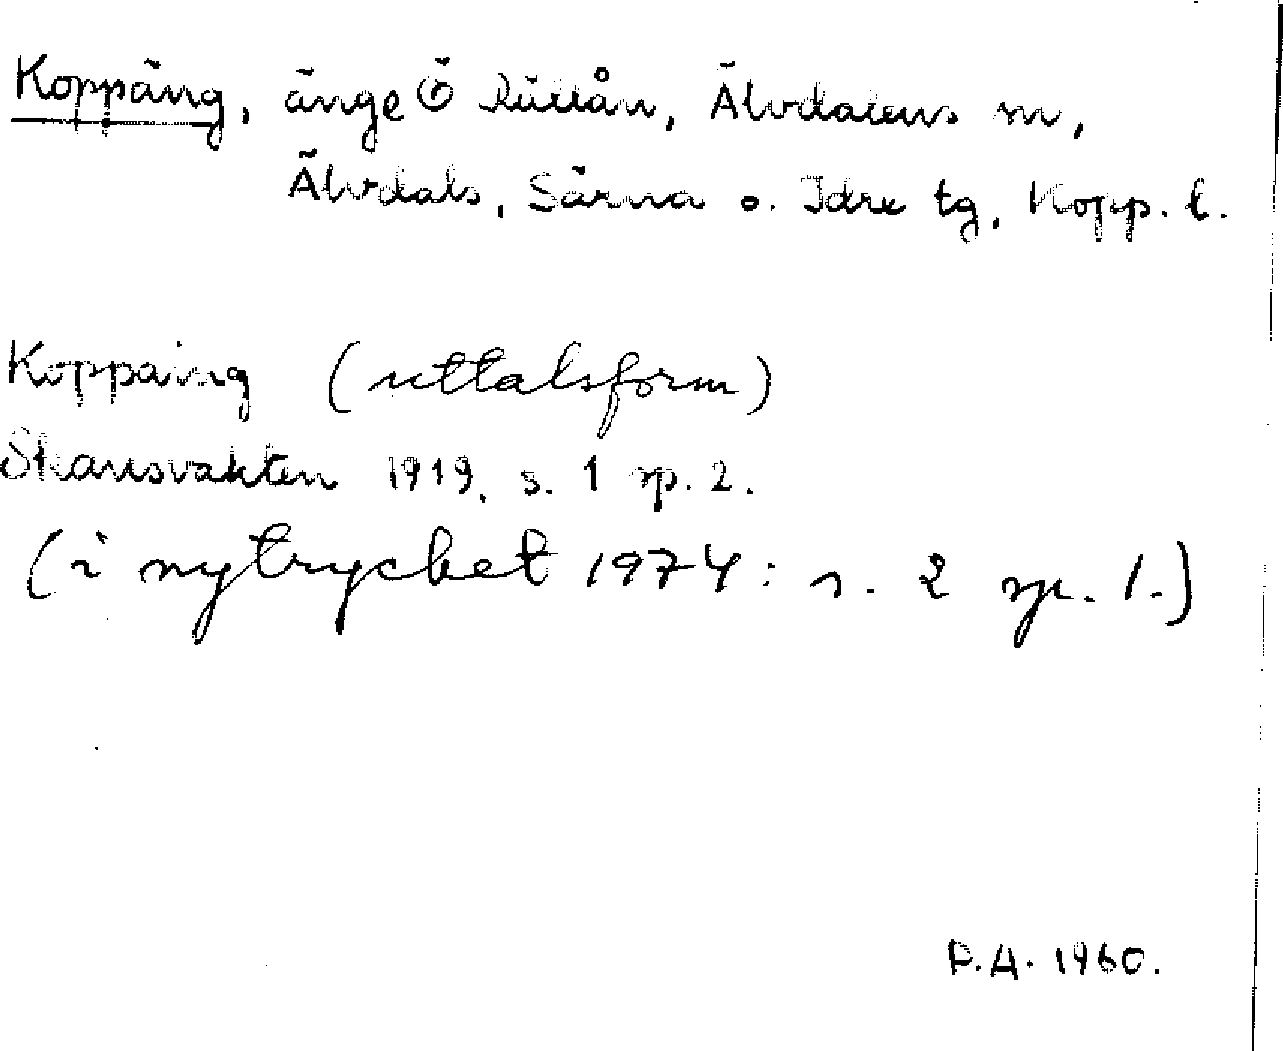 Koppäng, änge Ö Rällån, Älvdalens sn,
Älvdals, Särna o. Idre tg, Kopp. l.
Koppaing (uttalsform)
Skansvakten 1919, s. 1 sp. 2.
(i nytrycket 1974: s. 2 sp. 1.)
P.A. 1960.